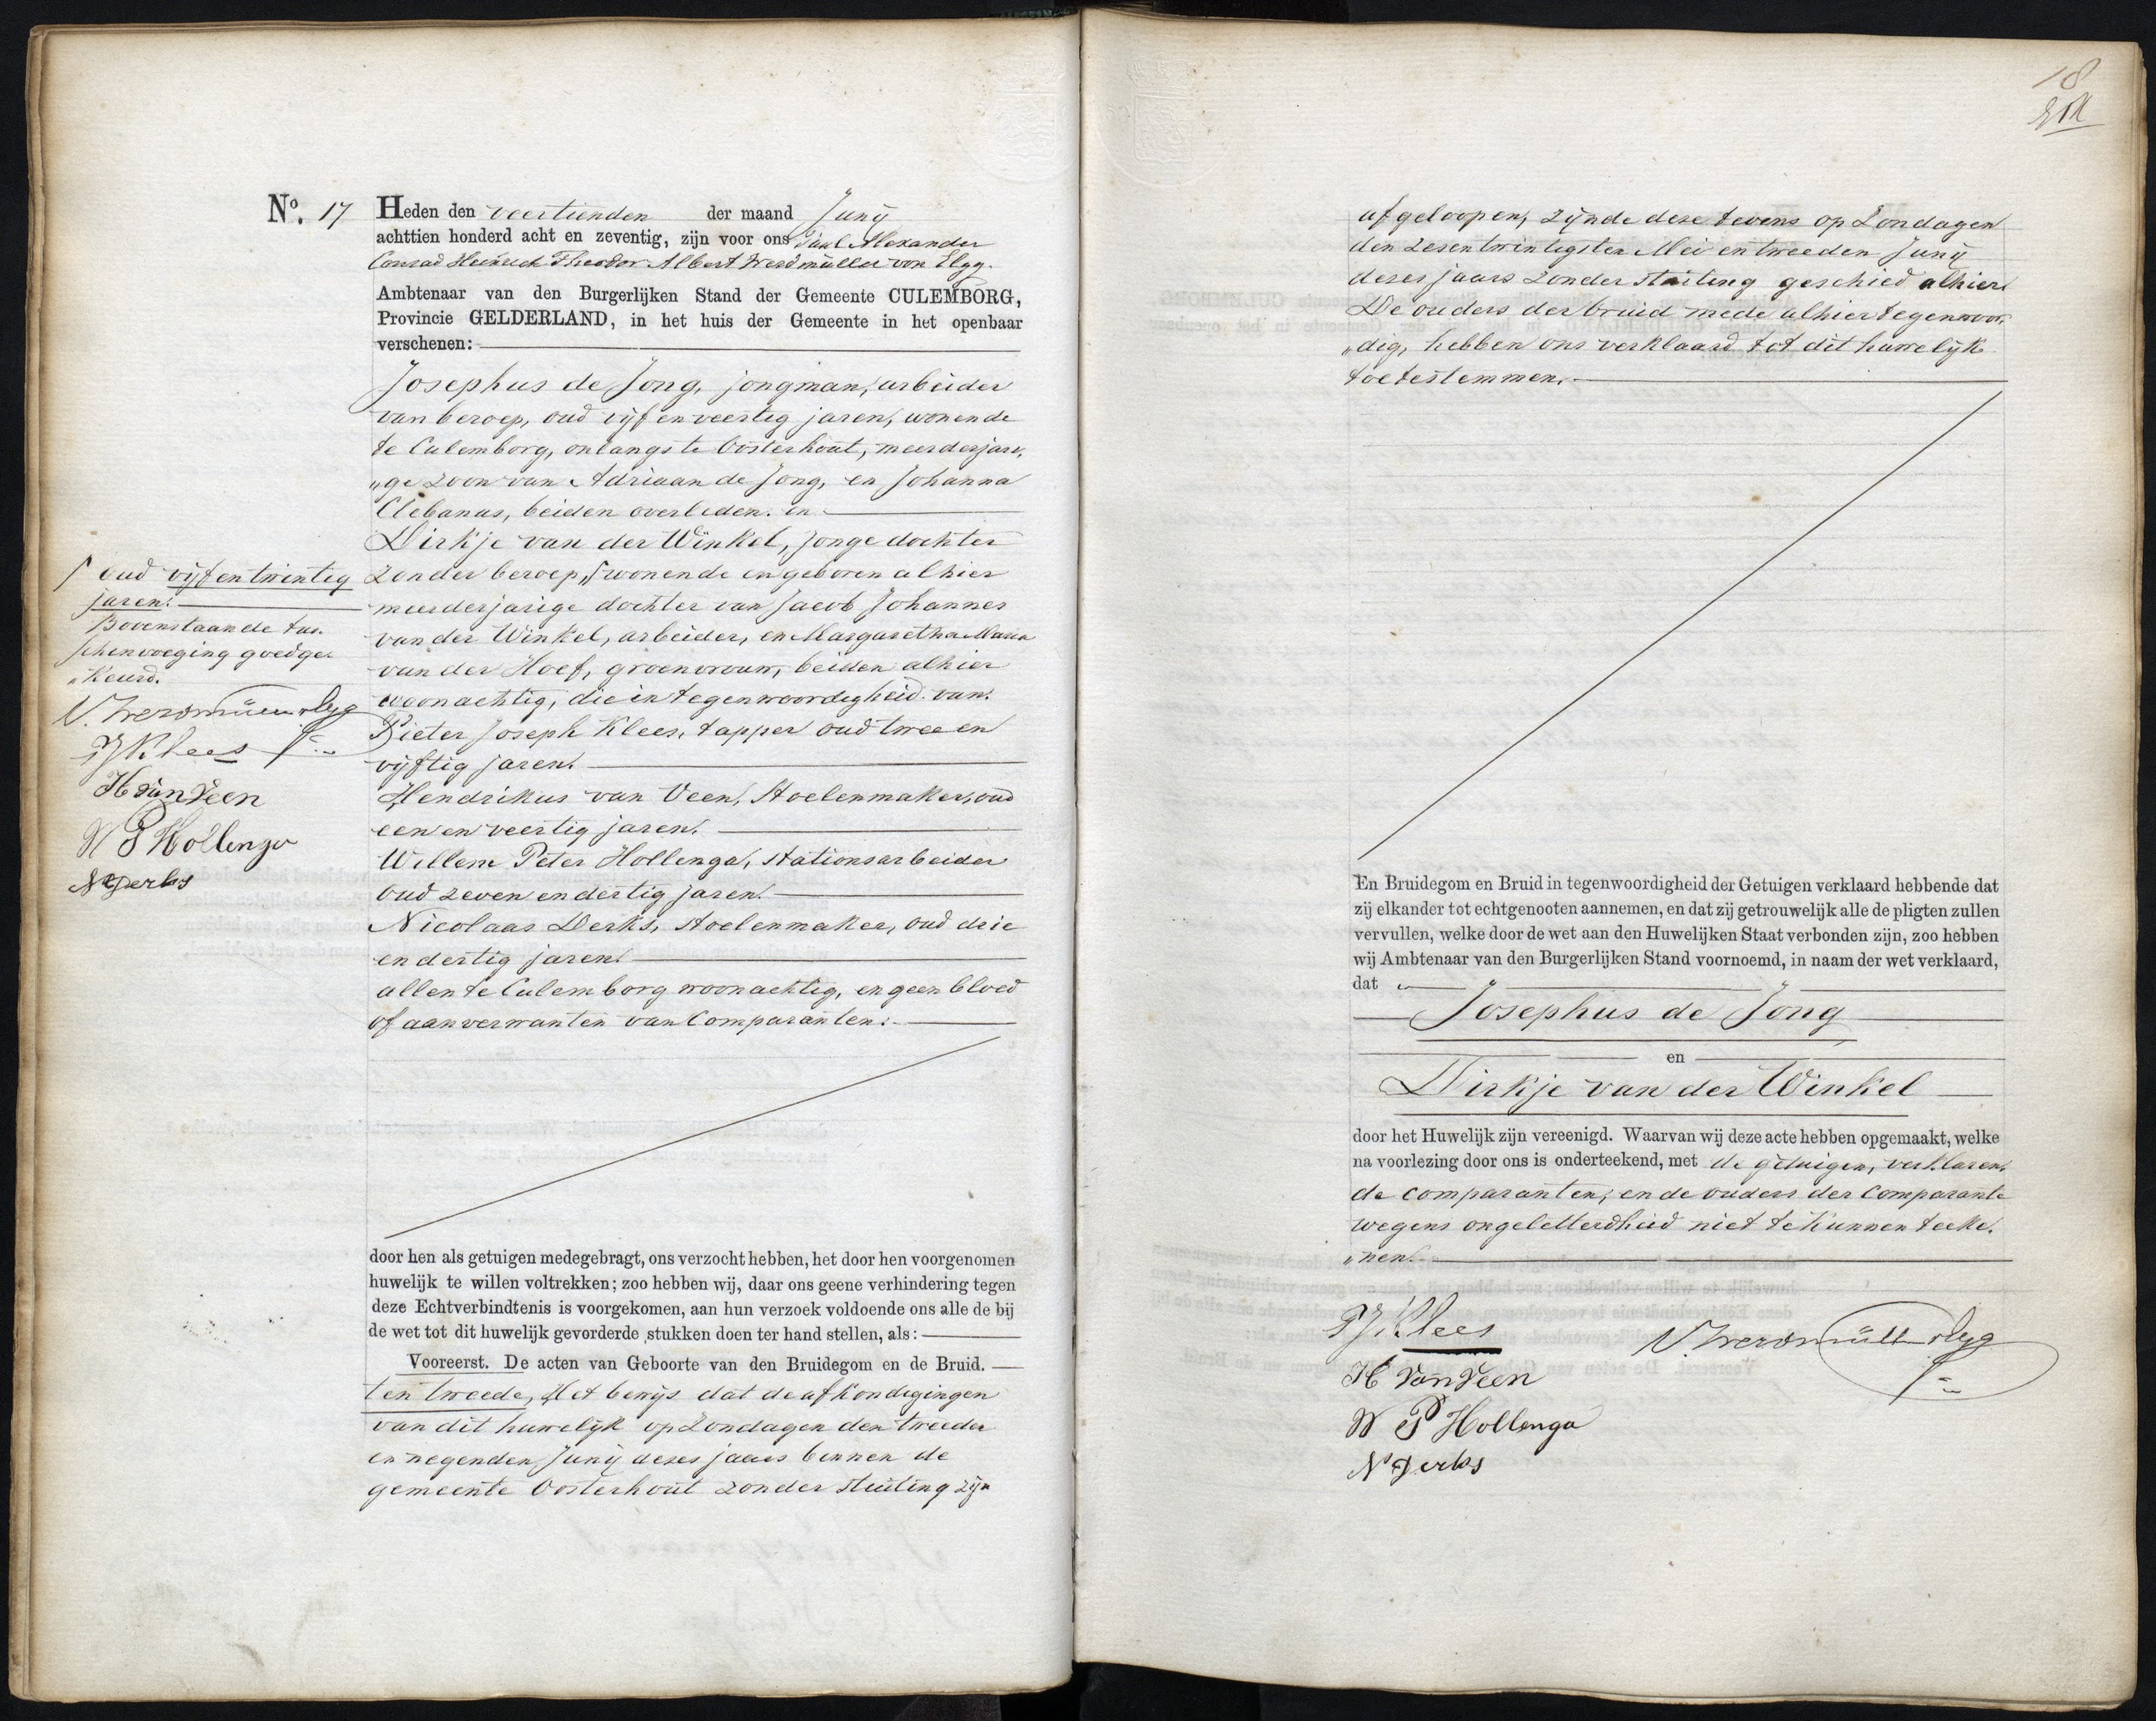 No. 17
Heden den veertienden der maand Junij
achttien honderd acht en zeventig, zijn voor ons Paul Alexander
Conrad Heinrich Theodor Albert Werdmüller von Elgg.
Ambtenaar van den Burgerlijken Stand der Gemeente CULEMBORG,
Provincie GELDERLAND, in het huis der Gemeente in het openbaar
verschenen:
Josephus de Jong, jongman, arbeider
van beroep, oud vijf en veertig jaren, wonende
te Culemborg, onlangs te Oosterhout, meerderjari,
„ge zoon van Adriaan de Jong, en Johanna
Clebanus, beiden overleden. en
Dirkje van der Winkel, jonge dochter
zonder beroep, ſ wonende en geboren alhier
meerderjarige dochter van Jacob Johannes
van der Winkel, arbeider, en Margaretha Maria
van der Hoef, groenvrouw, beiden alhier
woonachtig, die in tegenwoordigheid van.
Pieter Joseph Klees, tapper oud twee en
vijftig jaren.
Hendrikus van Veen, Stoelenmaker, oud
een en veertig jaren.
Willem Peter Hollenga, Stationsarbeider
oud zeven en dertig jaren.
Nicolaas Derks, Stoelenmaker, oud drie
en dertig jaren.
allen te Culemborg woonachtig, en geen bloed
of aanverwanten van Comparanten.
ſ oud vijf en twintig
jaren.
Bovenstaande tus.
schenvoeging goedge.
„keurd.
V. Werdmüller v Elgg
PJKlees
H van Veen
W P Hollenga
N Derks
door hen als getuigen medegebragt, ons verzocht hebben, het door hen voorgenomen
huwelijk te willen voltrekken; zoo hebben wij, daar ons geene verhindering tegen
deze Echtverbindtenis is voorgekomen, aan hun verzoek voldoende ons alle de bij
de wet tot dit huwelijk gevorderde stukken doen ter hand stellen, als:
Vooreerst. De acten van Geboorte van den Bruidegom en de Bruid.
ten tweede, Het bewijs dat de afkondigingen
van dit huwelijk op Zondagen den tweeden
en negenden Junij dezes jaars binnen de
gemeente Oosterhout zonder stuiting zijn
18
afgeloopen, zijnde deze tevens op Zondagen
den zesentwintigsten Mei en tweeden Junij
dezes jaars zonder stuiting geschied alhier.
De ouders der bruid mede alhier tegenwoor,
„dig, hebben ons verklaard tot dit huwelijk
toe te stemmen.
En Bruidegom en Bruid in tegenwoordigheid der Getuigen verklaard hebbende dat
zij elkander tot echtgenooten aannemen, en dat zij getrouwelijk alle de pligten zullen
vervullen, welke door de wet aan den Huwelijken Staat verbonden zijn, zoo hebben
wij Ambtenaar van den Burgerlijken Stand voornoemd, in naam der wet verklaard,
dat
Josephus de Jong
en
Dirkje van der Winkel
door het Huwelijk zijn vereenigd. Waarvan wij deze acte hebben opgemaakt, welke
na voorlezing door ons is onderteekend, met de getuigen, verklaren,
de comparanten, en de ouders der Comparante
wegens ongeletterdheid niet te kunnen teeke.
„nen.
PJKlees
V. Werdmüller v Elgg
H van Veen
W P Hollenga
N Derks